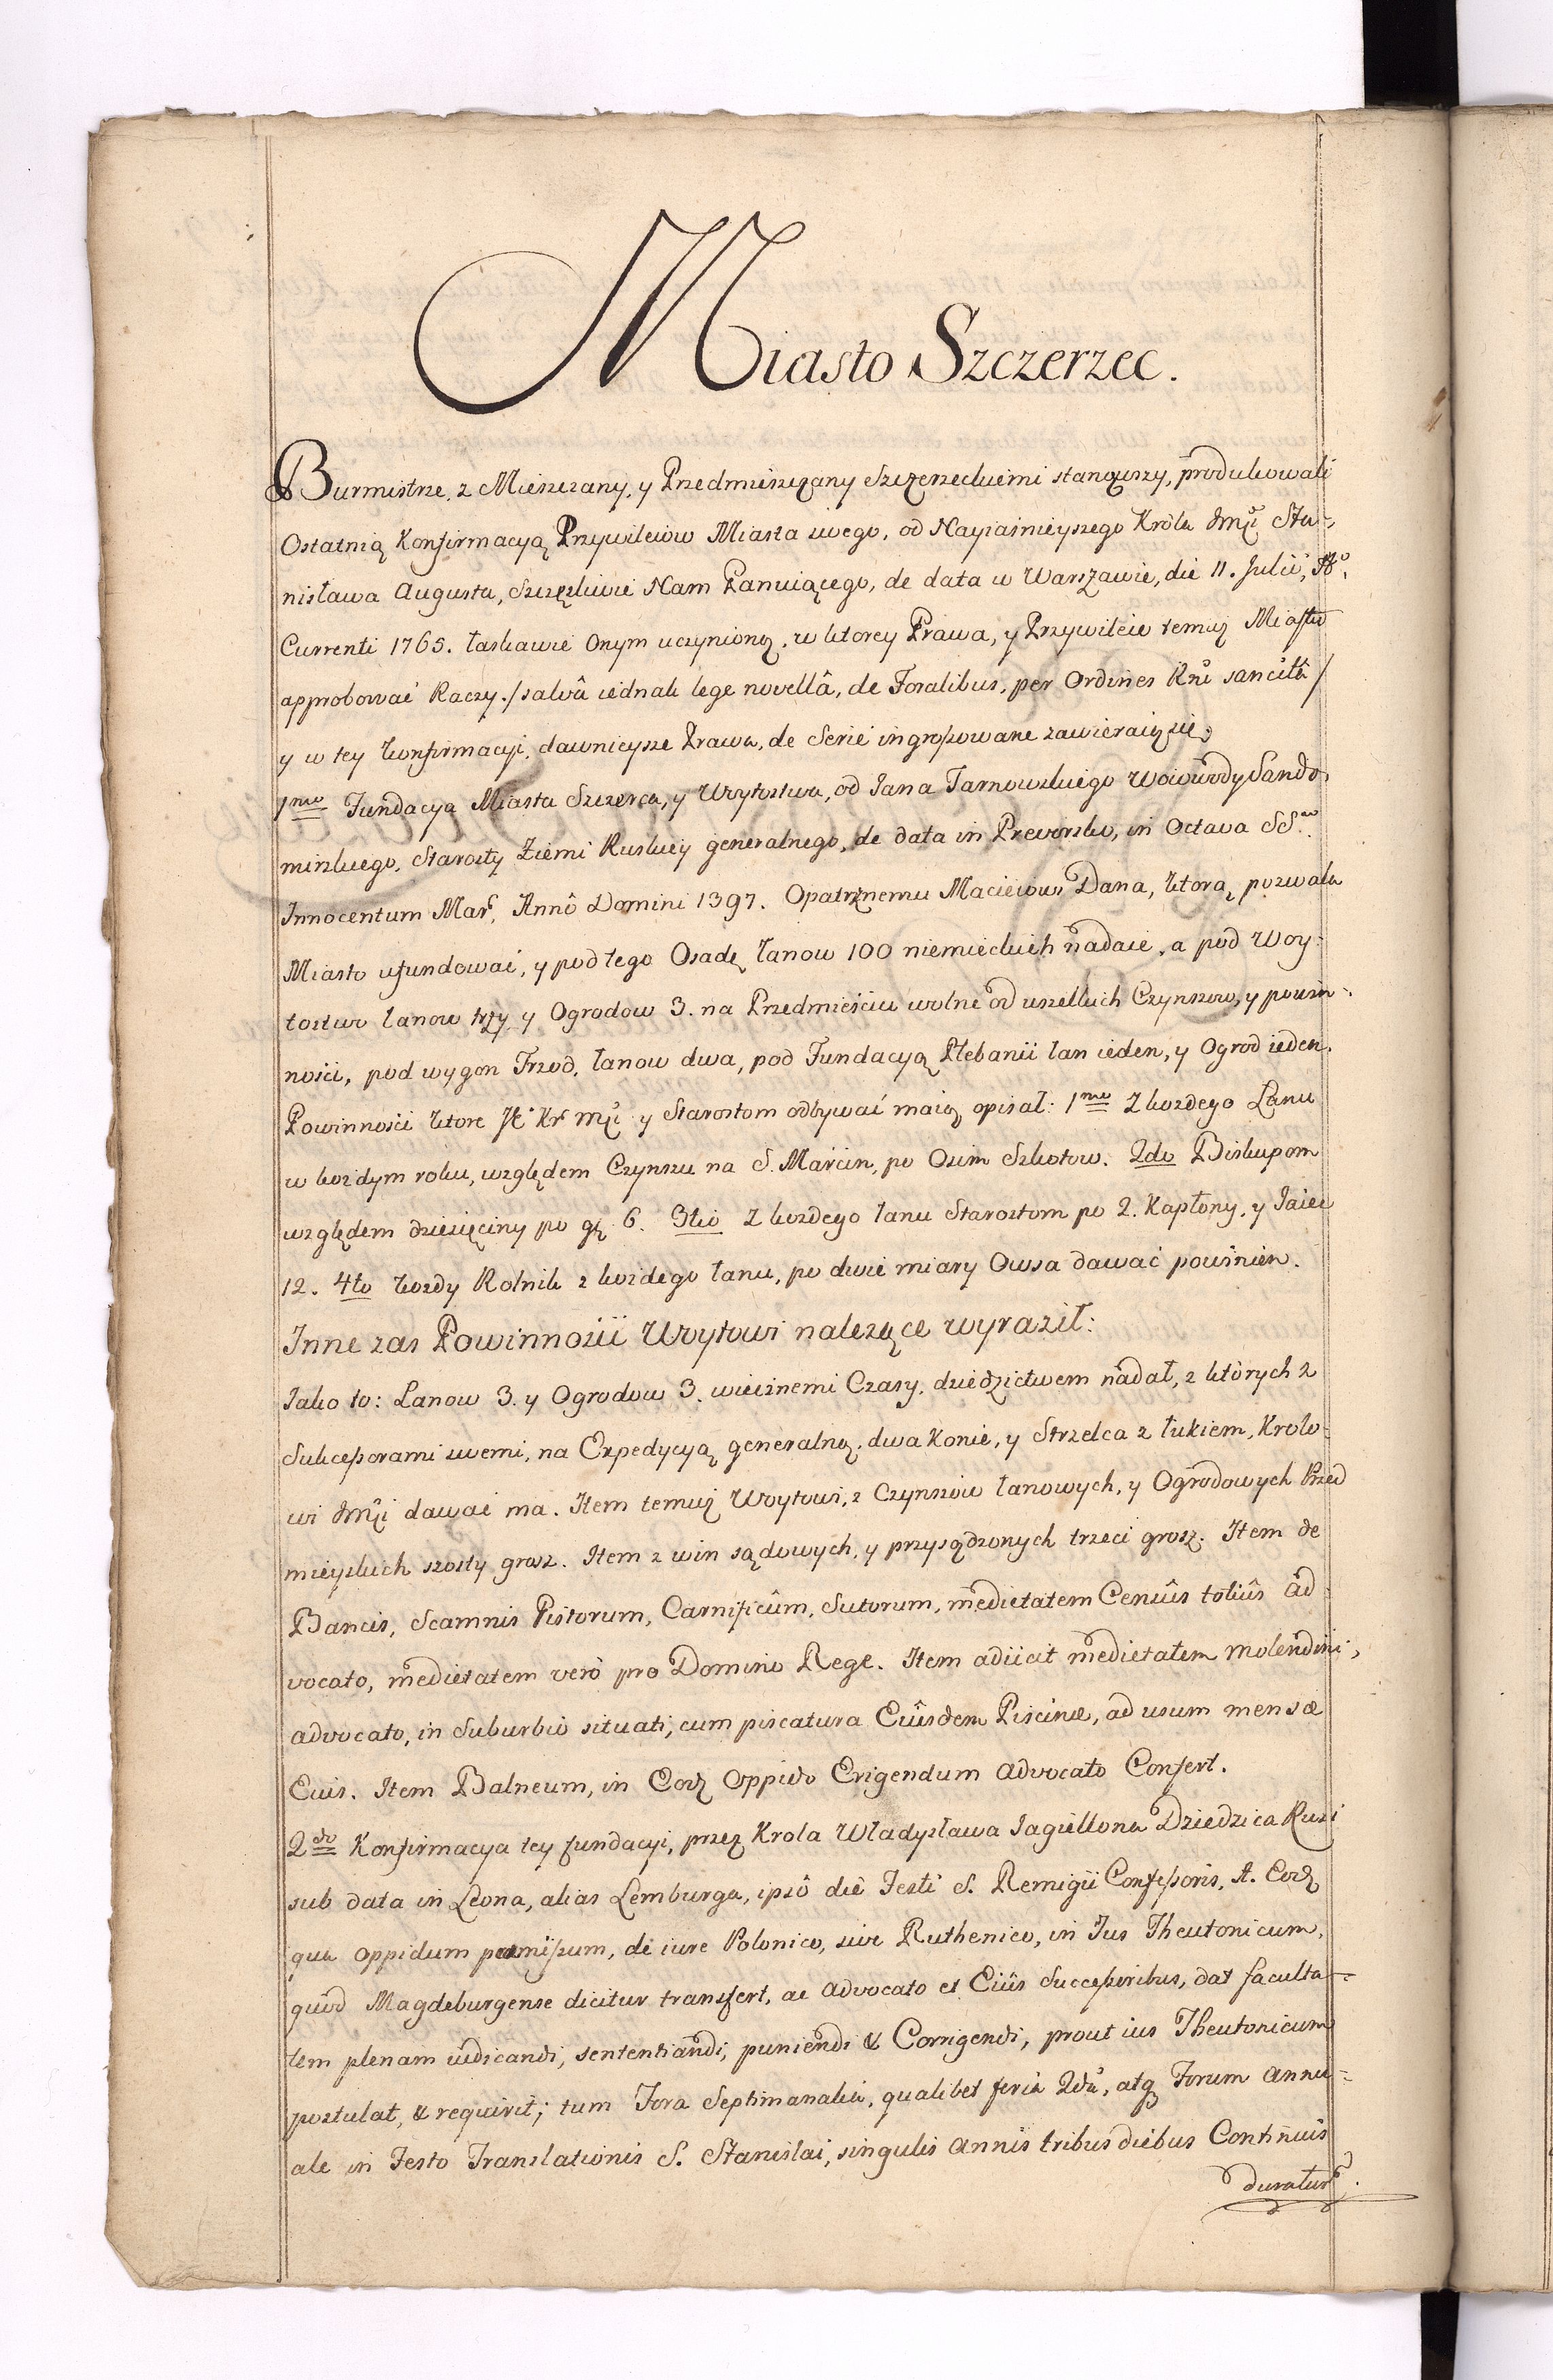 Miasto Szczerzec.
Burmistrze, z Mieszczany, y Przedmieszczany Szczerzeckiemi stanąwszy, produkowali
Ostatnią Konfirmacyą Przywileiow Miasta swego, od Nayiaśnieyszego Króla Jmći Sta-
nisława Augusta, Szczęśliwie Nam Panuiącego, de data w Warszawie, die 11. Julii, Aō.
Currenti 1765. łaskawie Onym uczynioną, w ktorey Prawa, y Przywileie temuż Miastu
approbować Raczy. / salvâ iednak lege novellâ, de Foralibus, per Ordines Rni sancitâ /
y w tey konfirmacyi, dawnieysze Prawa, de Serie ingrossowane zawieraią się;
1mo Fundacya Miasta Szczerca, y Woytostwa, od Jana Tarnowskiego Woiewody Sando-
mirskiego, Starosty Ziemi Ruskiey generalnego, de data in Preworsko, in Octava SS.
Innocentum Mar. Annô Domini 1397. Opatrznemu Macieiowi Dana, ktorą pozwala
Miasto ufundować, y pod tego Osadę łanow 100 niemieckich nadaie, a pod Woy-
tostwo łanow trzy y Ogrodow 3. na Przedmieściu wolne od wszelkich Czynszow, y powin-
ności, pod wygon Trzod, łanow dwa, pod Fundacyą Plebanii łan ieden, y Ogrod ieden.
Powinności ktore Kr Mći y Starostom odbywać maią opisał: 1mo Z kożdego Łanu
w kożdym roku, względem Czynszu na S. Marcin, po Osim Szkotow. 2do Biskupom
względem dziesięciny po gr 6. 3tio Z kożdego łanu Starostom po 2. Kapłony, y Jaiec
12. 4to kożdy Rolnik z kożdego łanu, po dwie miary Owsa dawać powinien.
Inne zas Powinności Woytowi należące wyraził:
Jako to: Lanow 3. y Ogrodow 3. wiecznemi Czasy, dziedzictwem nadał, z których z
Sukcessorami swemi, na Expedycyą generalną, dwa Konie, y Strzelca z łukiem, Krolo-
wi Jmći dawać ma. Item temuż Woytowi, z Czynszow łanowych, y Ogrodowych Przed
mieyskich szosty grosz. Item z win sądowych, y przysądzonych trzeci grosz. Item de
Bancis, Scamnis Pistorum, Carnificûm, Sutorum, medietatem Censûs totiûs ad-
vocato, medietatem verò pro Domino Rege. Item adiicit medietatem molendini,
advocato, in Suburbio situati, cum piscatura Eiûsdem Piscinæ, ad usum mensæ
Eius. Item Balneum, in Eodz Oppido Erigendum Advocato Confert.
2do Konfirmacya tey fundacyi, przez Krola Władysława Jagiellona Dziedzica Rusi
sub data in Leona, alias Lemburga, ipsô die Festi S. Remigii Confessoris, A. Eodz
qua Oppidum præmissum, de iure Polonico, sive Ruthenico, in Jus Theutonicum,
quod Magdeburgense dicitur transfert, ac Advocato et Eiûs Successoribus, dat faculta-
tem plenam iudicandi, sententiandi, puniendi & Corrigendi, prout ius Theutonicum
postulat, & requirit; tum Fora Septimanalia, qualibet feria 2da, atq Forum Annu-
ale in Festo Translationis S. Stanislai, singulis Annis tribus diebus Continuis
duratur.